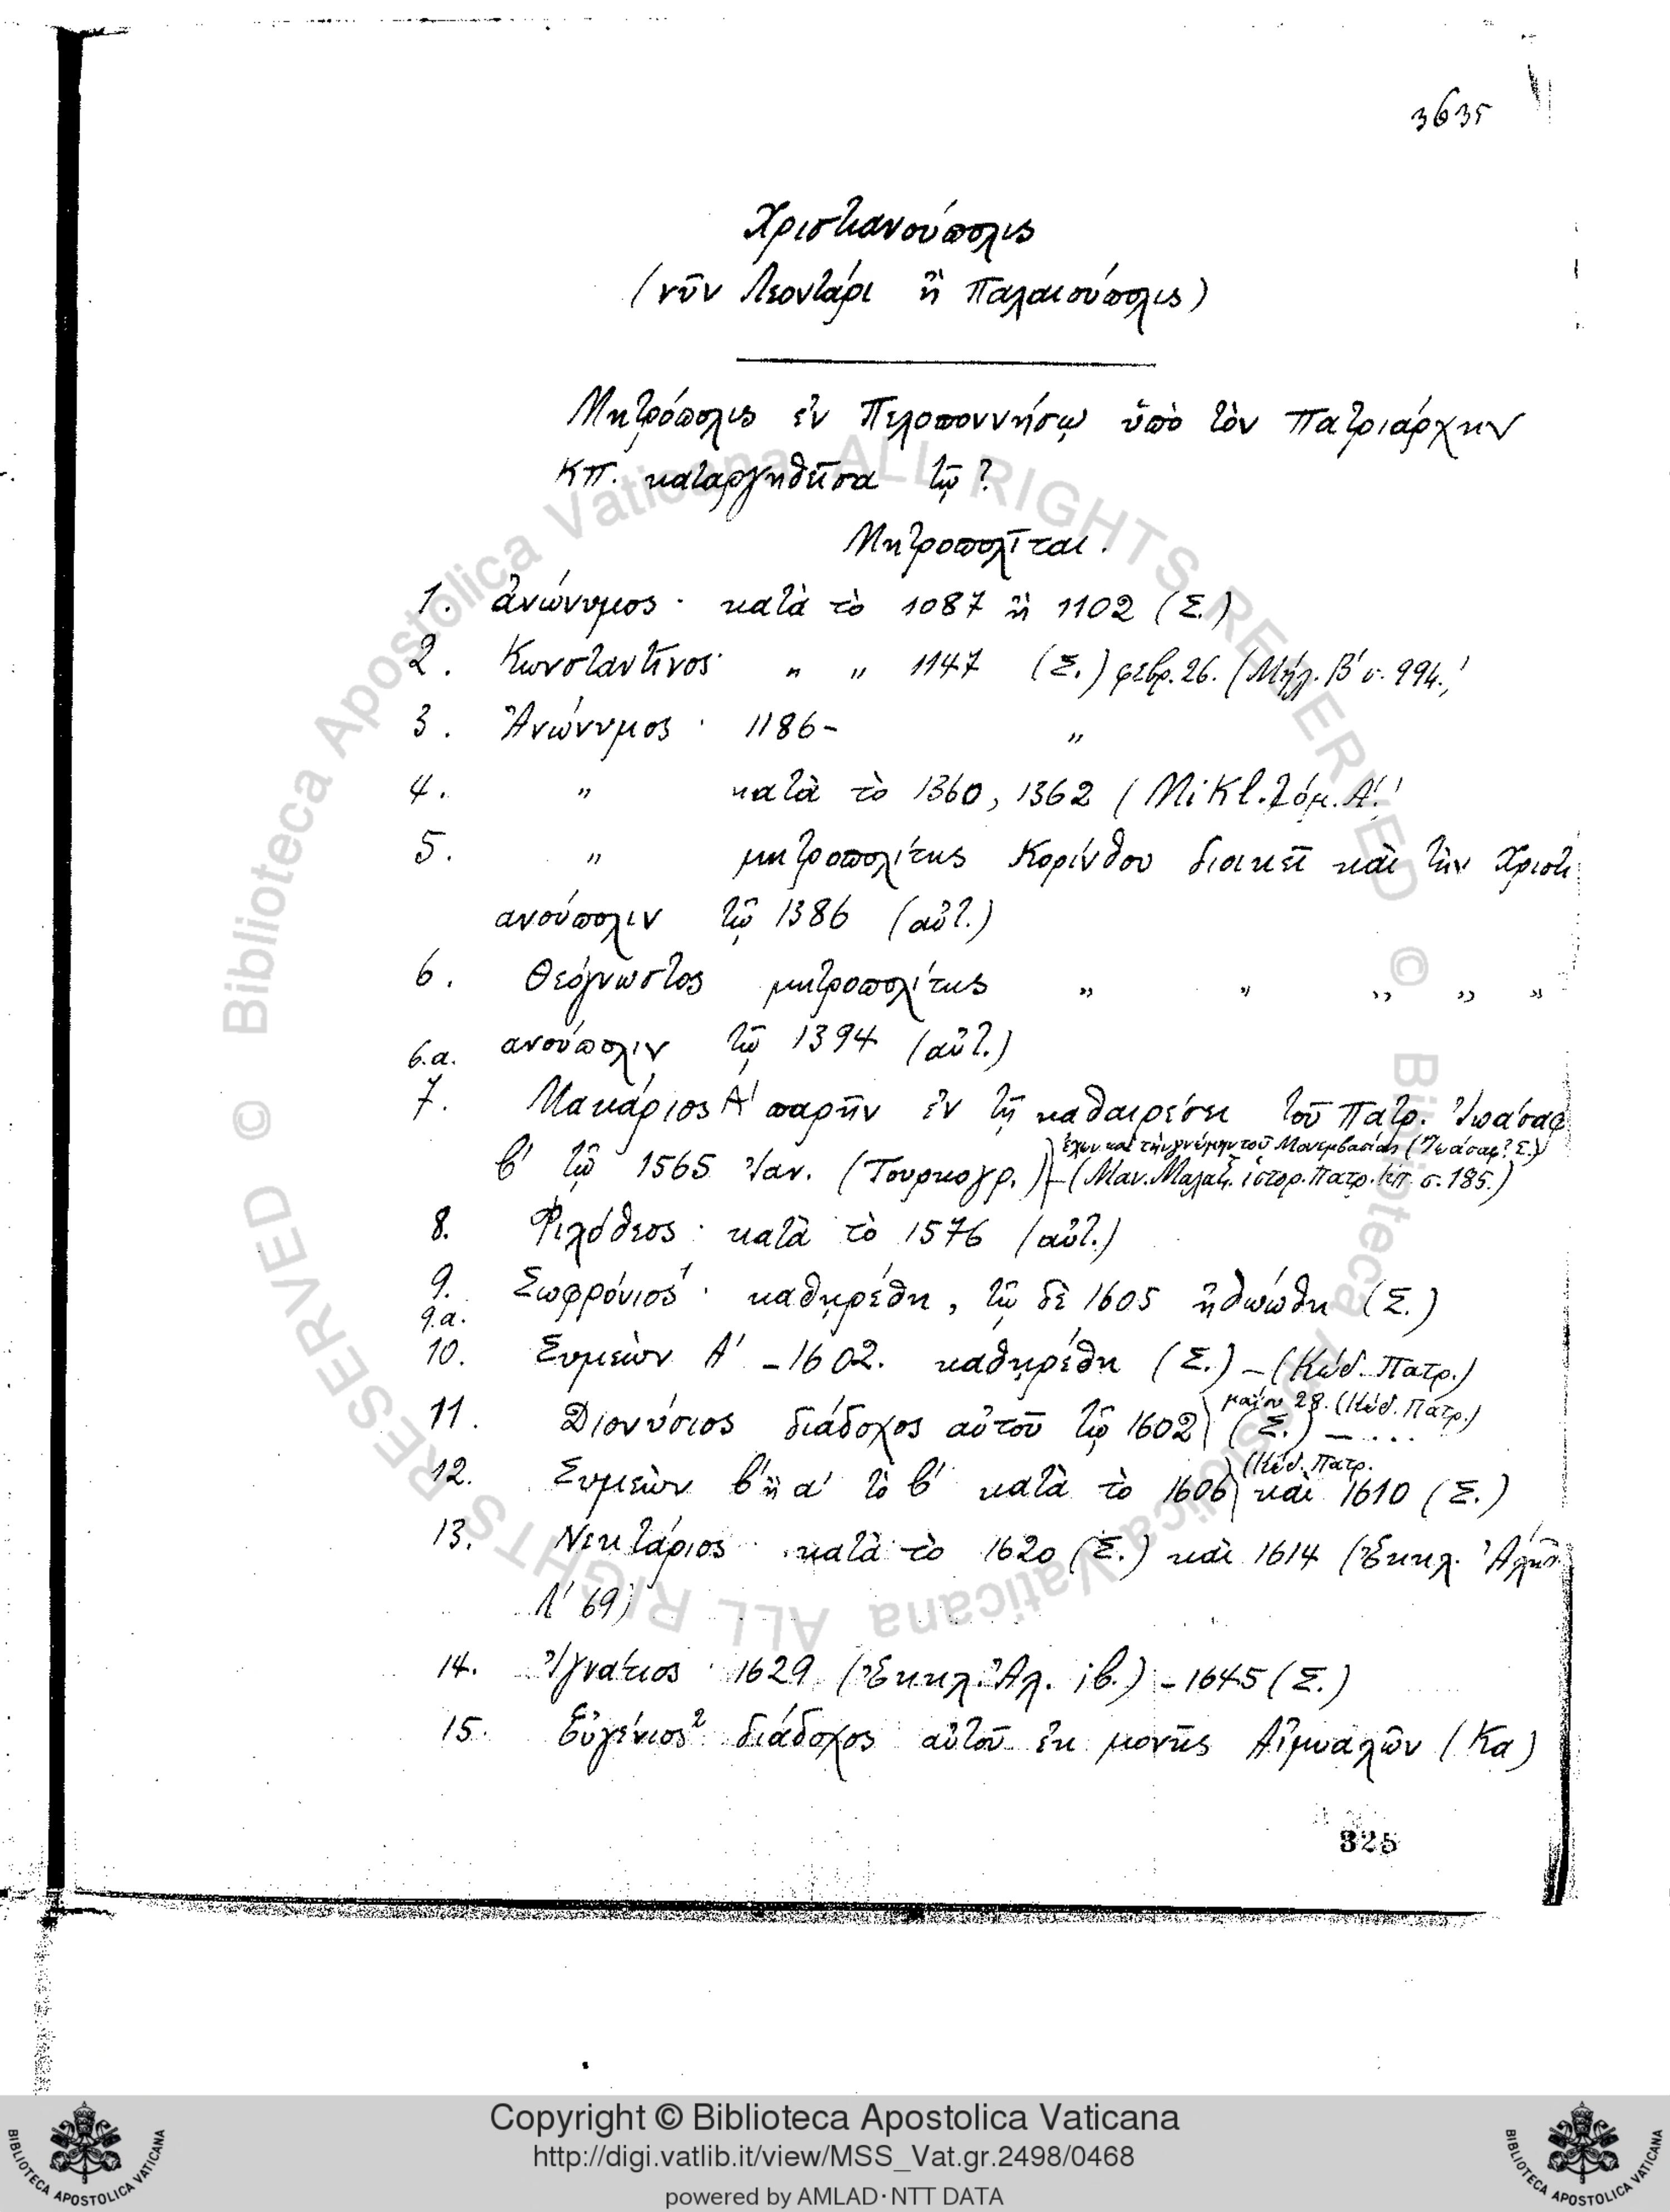 3635
Χριστιανούπολις
(νῦν Λεοντάρι ἢ Παλαιούπολις)
Μητρόπολις ἐν Πελοποννήσῳ ὑπὸ τὸν Πατριάρχην
ΚΠ. καταργηθεῖσα τῷ ?
Μητροπολῖται.
1. ἀνώνυμος · κατὰ τὸ 1087 ἢ 1102 (Σ.)
2. Κωνσταντῖνος · „ „ 1147 (Σ.) φεβρ. 26. (Μήλ. Β' σ. 994.)
3. Ἀνώνυμος · 1186 - „
4. „ κατὰ τὸ 1360, 1362 (Mikl. τόμ. Α'.)
5. „ μητροπολίτης Κορίνθου διοικεῖ καὶ τὴν Χριστι
ανούπολιν τῷ 1386 (αὐτ.)
6. Θεόγνωστος μητροπολίτης „ „ „ „ „
6.α. ανούπολιν τῷ 1394 (αὐτ.)
7. Μακάριος Α' παρῆν ἐν τῇ καθαιρέσει τοῦ Πατρ. Ἰωάσαφ
ἔχων καὶ τὴν γνώμην τοῦ Μονεμβασίας (Ἰωάσαφ? Σ.)
β' τῷ 1565 Ἰαν. (Τουρκογρ.) - (Μαν. Μαλαξ. ἱστορ. Πατρ. ΚΠ. σ. 185.)
8. Φιλόθεος · κατὰ τὸ 1576 (αὐτ.)
9. Σωφρόνιος¹ · καθῃρέθη, τῷ δὲ 1605 ἠθωώθη (Σ.)
9.α.
10. Συμεὼν Α' - 1602. καθῃρέθη (Σ.) - (Κώδ. Πατρ.)
11. Διονύσιος διάδοχος αὐτοῦ τῷ 1602 μαΐου 28. (Κώδ. Πατρ.) (Σ.) - ...
12. Συμεὼν β' ἢ α' τὸ β' κατὰ τὸ 1606 (Κώδ. Πατρ. καὶ 1610 (Σ.)
13. Νεκτάριος · κατὰ τὸ 1620 (Σ.) καὶ 1614 (Ἐκκλ. Ἀλήθ.
Λ' 69)
14. Ἰγνάτιος · 1629 (Ἐκκλ. Ἀλ. ιβ.) - 1645 (Σ.)
15. Εὐγένιος² διάδοχος αὐτοῦ ἐκ μονῆς Αἰμυαλῶν (Κα)
325
© Biblioteca Apostolica Vaticana ALL RIGHTS RESERVED
© Biblioteca Apostolica Vaticana ALL RIGHTS RESERVED
Copyright © Biblioteca Apostolica Vaticana
http://digi.vatlib.it/view/MSS_Vat.gr.2498/0468
powered by AMLAD·NTT DATA
BIBLIOTECA APOSTOLICA VATICANA
BIBLIOTECA APOSTOLICA VATICANA